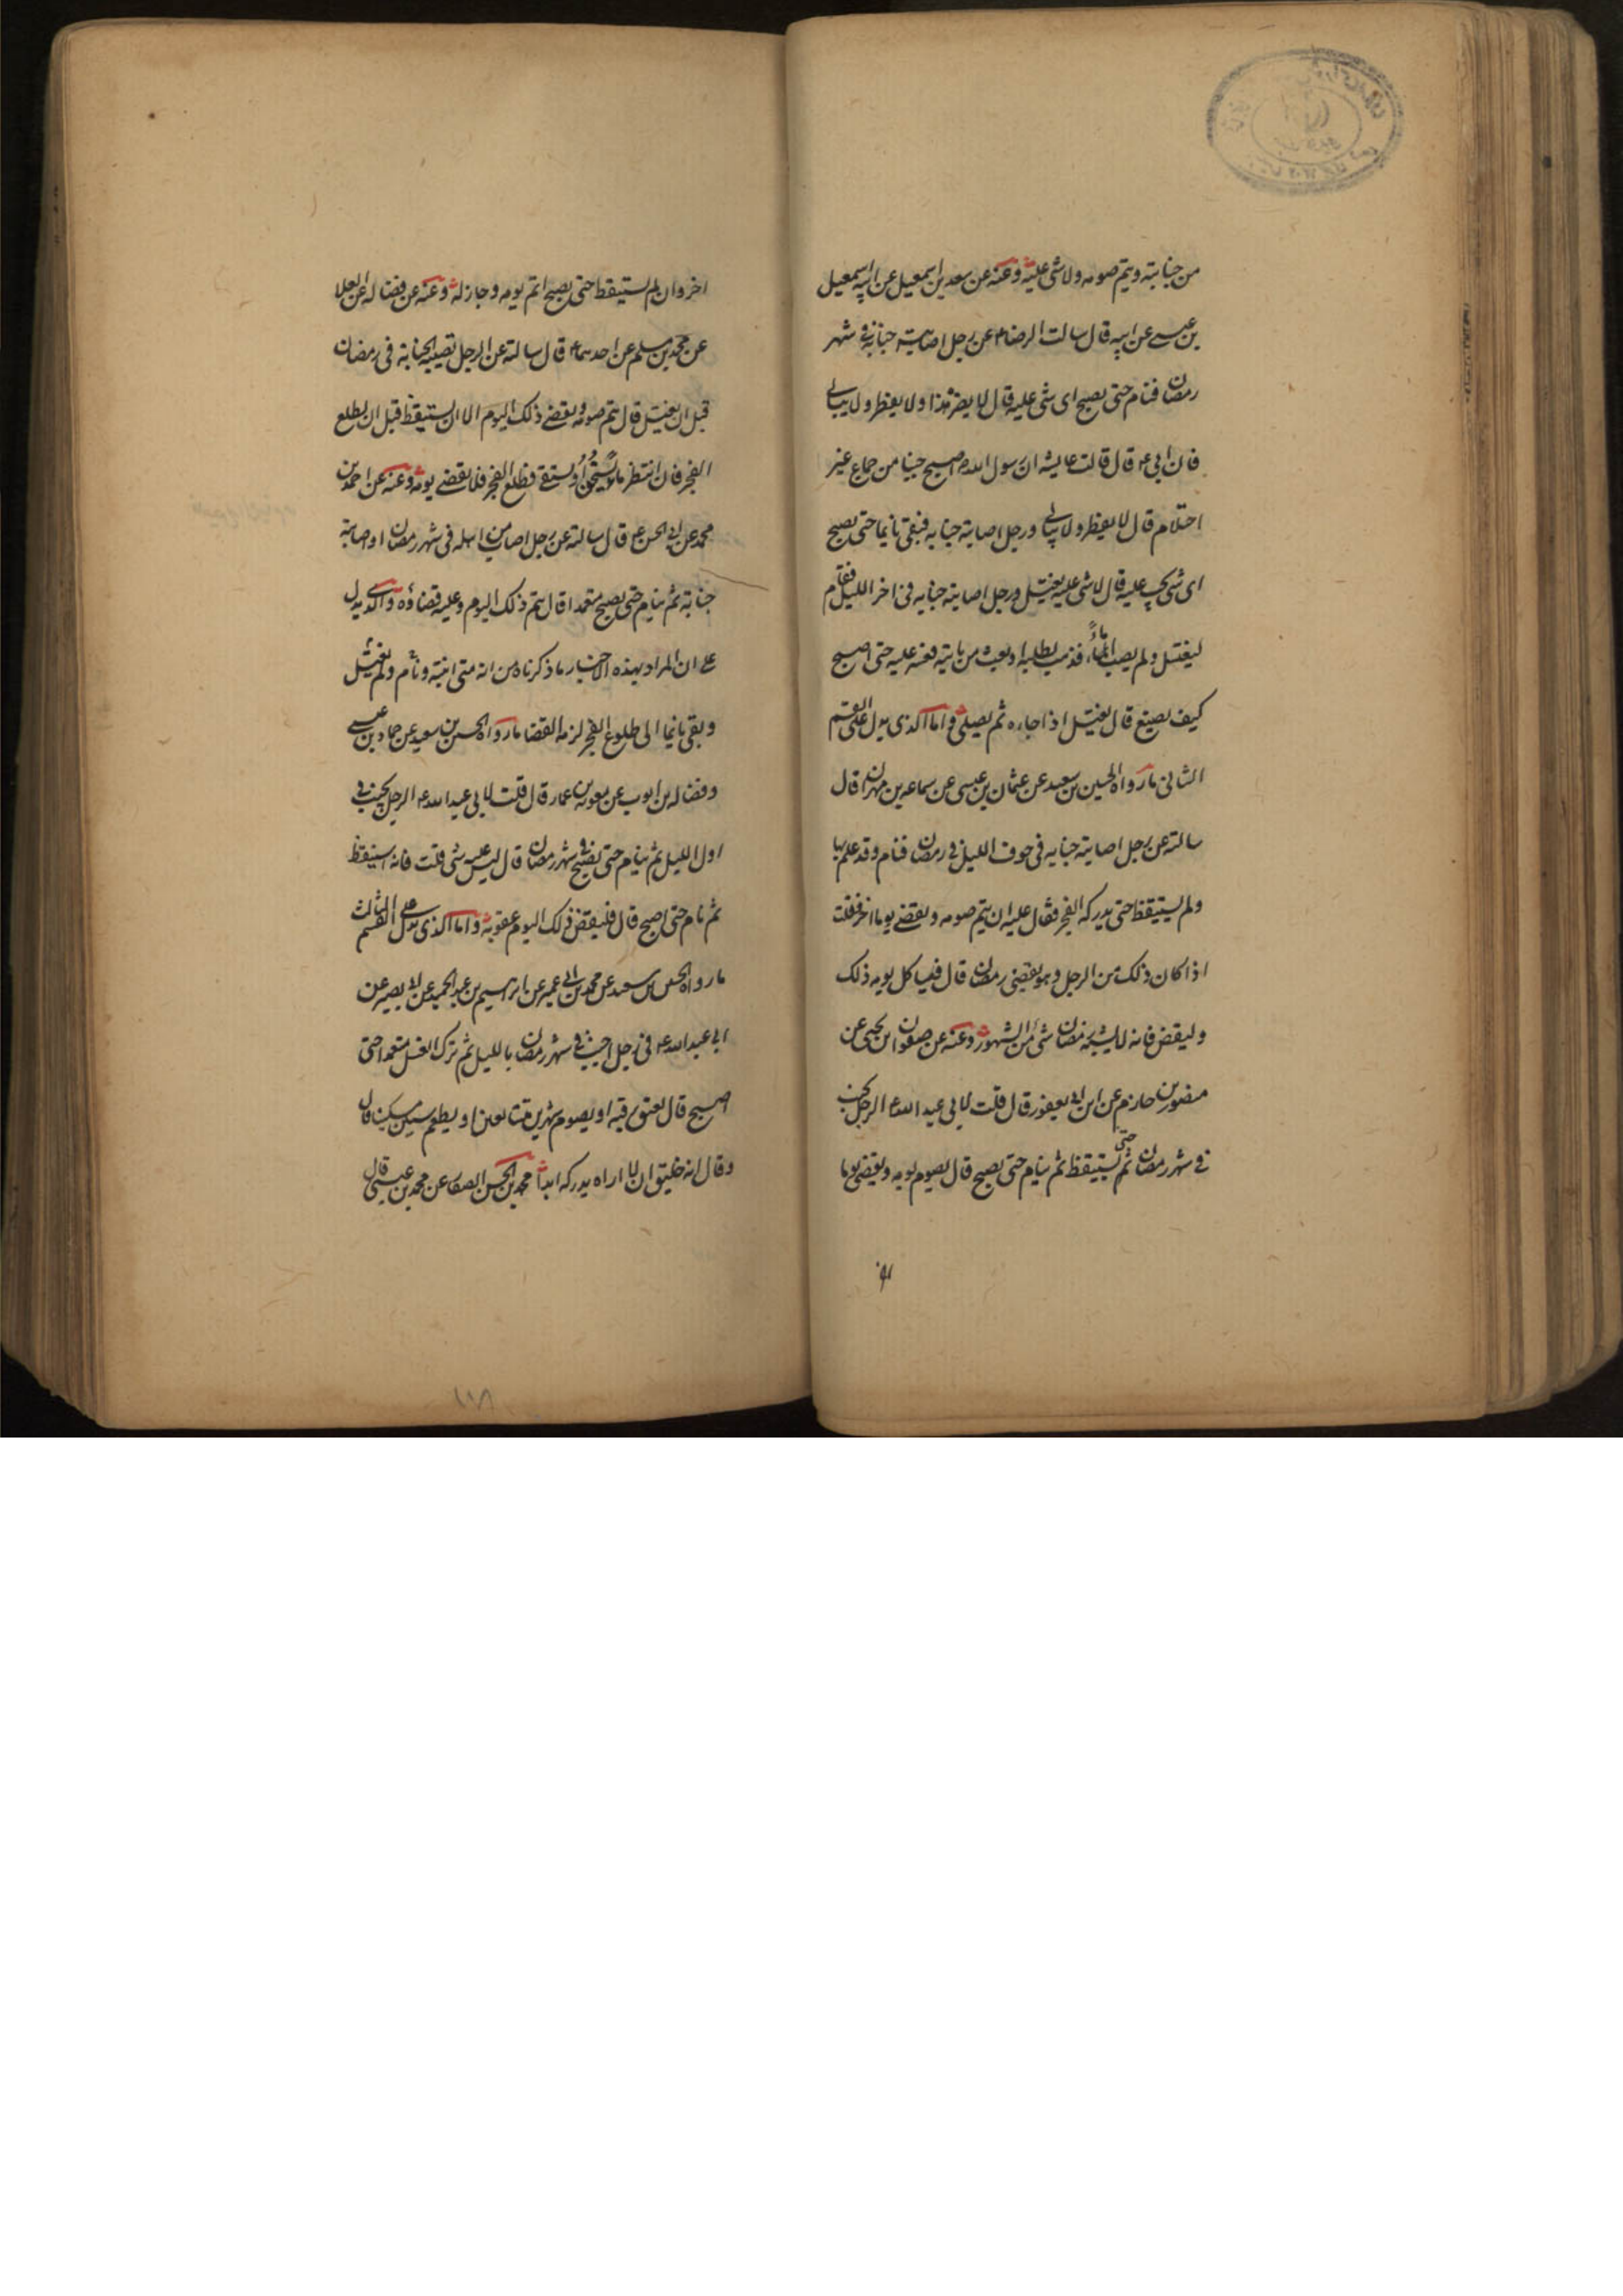 من جنابته ويتم صومه ولا شئ عليه وعنه عن سعد بن اسمعيل عن ابيه اسمعيل
بن عيسى عن ابيه قال سالت الرضا ع عن رجل اصابته جنابة في شهر
رمضان فنام حتى يصبح اى شئ عليه قال لا يضره هذا ولا يفطر ولا يبالى
فان ابى ع قال قالت عايشه ان رسول الله اصبح جنبا من جماع غير
احتلام قال لا يفطر ولا يبالى ورجل اصابته جنابه فبقى نايما حتى يصبح
اى شئ يجب عليه قال لا شئ عليه يغتسل ورجل اصابته جنابه فى اخر الليل فقام
ليغتسل ولم يصب ماء فذهب يطلبه او بعث من ياتيه فعسر عليه حتى اصبح
كيف يصنع قال يغتسل اذا جاءه ثم يصلى واما الذى يدل على القسم
الثانى ما رواه الحسين بن سعيد عن عثمان بن عيسى عن سماعه بن مهران قال
سالته عن رجل اصابته جنابه فى جوف الليل فى رمضان فنام وقد علم بها
ولم يستيقظ حتى يدركه الفجر فقال عليه ان يتم صومه ويقضى يوما اخر فقلت
اذا كان ذلك من الرجل وهو يقضى رمضان قال فلياكل يومه ذلك
وليقض فانه لا يشبه رمضان شئ من الشهور وعنه عن صفوان بن يحيى عن
منصور بن حازم عن ابن ابى يعفور قال قلت لابى عبد الله ع الرجل يجنب
فى شهر رمضان ثم حتى يستيقظ ثم ينام حتى يصبح قال يصوم يومه ويقضى يوما
اخر وان لم يستيقظ حتى يصبح اتم يومه وجاز له وعنه عن فضاله عن العلا
عن محمد بن مسلم عن احدهما ع قال سالته عن الرجل تصيبه الجنابة فى رمضان
قبل ان يغتسل قال يتم صومه ويقضى ذلك اليوم الا ان يستيقظ قبل ان يطلع
الفجر فان انتظر ماء يسخن او يستقى فطلع الفجر فلا يقضى يومه وعنه عن احمد بن
محمد عن ابى الحسن ع قال سالته عن رجل اصاب من اهله فى شهر رمضان او اصابته
جنابة ثم ينام حتى يصبح متعمدا قال يتم ذلك اليوم وعليه قضاؤه والذى يدل
على ان المراد بهذه الاخبار ما ذكرناه من انه متى انتبه ونام ولم يغتسل
وبقى نايما الى طلوع الفجر لزمه القضا ما رواه الحسين بن سعيد عن حماد بن عيسى
وفضاله بن ايوب عن معوية بن عمار قال قلت لابى عبد الله ع الرجل يجنب فى
اول الليل ثم ينام حتى يصبح فى شهر رمضان قال ليس عليه شئ قلت فانه استيقظ
ثم نام حتى اصبح قال فليقض ذلك اليوم عقوبة واما الذى يدل على القسم الثالث
ما رواه الحسين بن سعيد عن محمد بن ابى عمير عن ابرهيم بن عبد الحميد عن ابى بصير عن
ابى عبد الله ع فى رجل اجنب فى شهر رمضان بالليل ثم ترك الغسل متعمدا حتى
اصبح قال يعتق رقبه او يصوم شهرين متتابعين او يطعم ستين مسكينا قال
وقال انه خليق ان لا اراه يدركه ابدا محمد بن الحسن الصفار عن محمد بن عيسى قال
١١٨